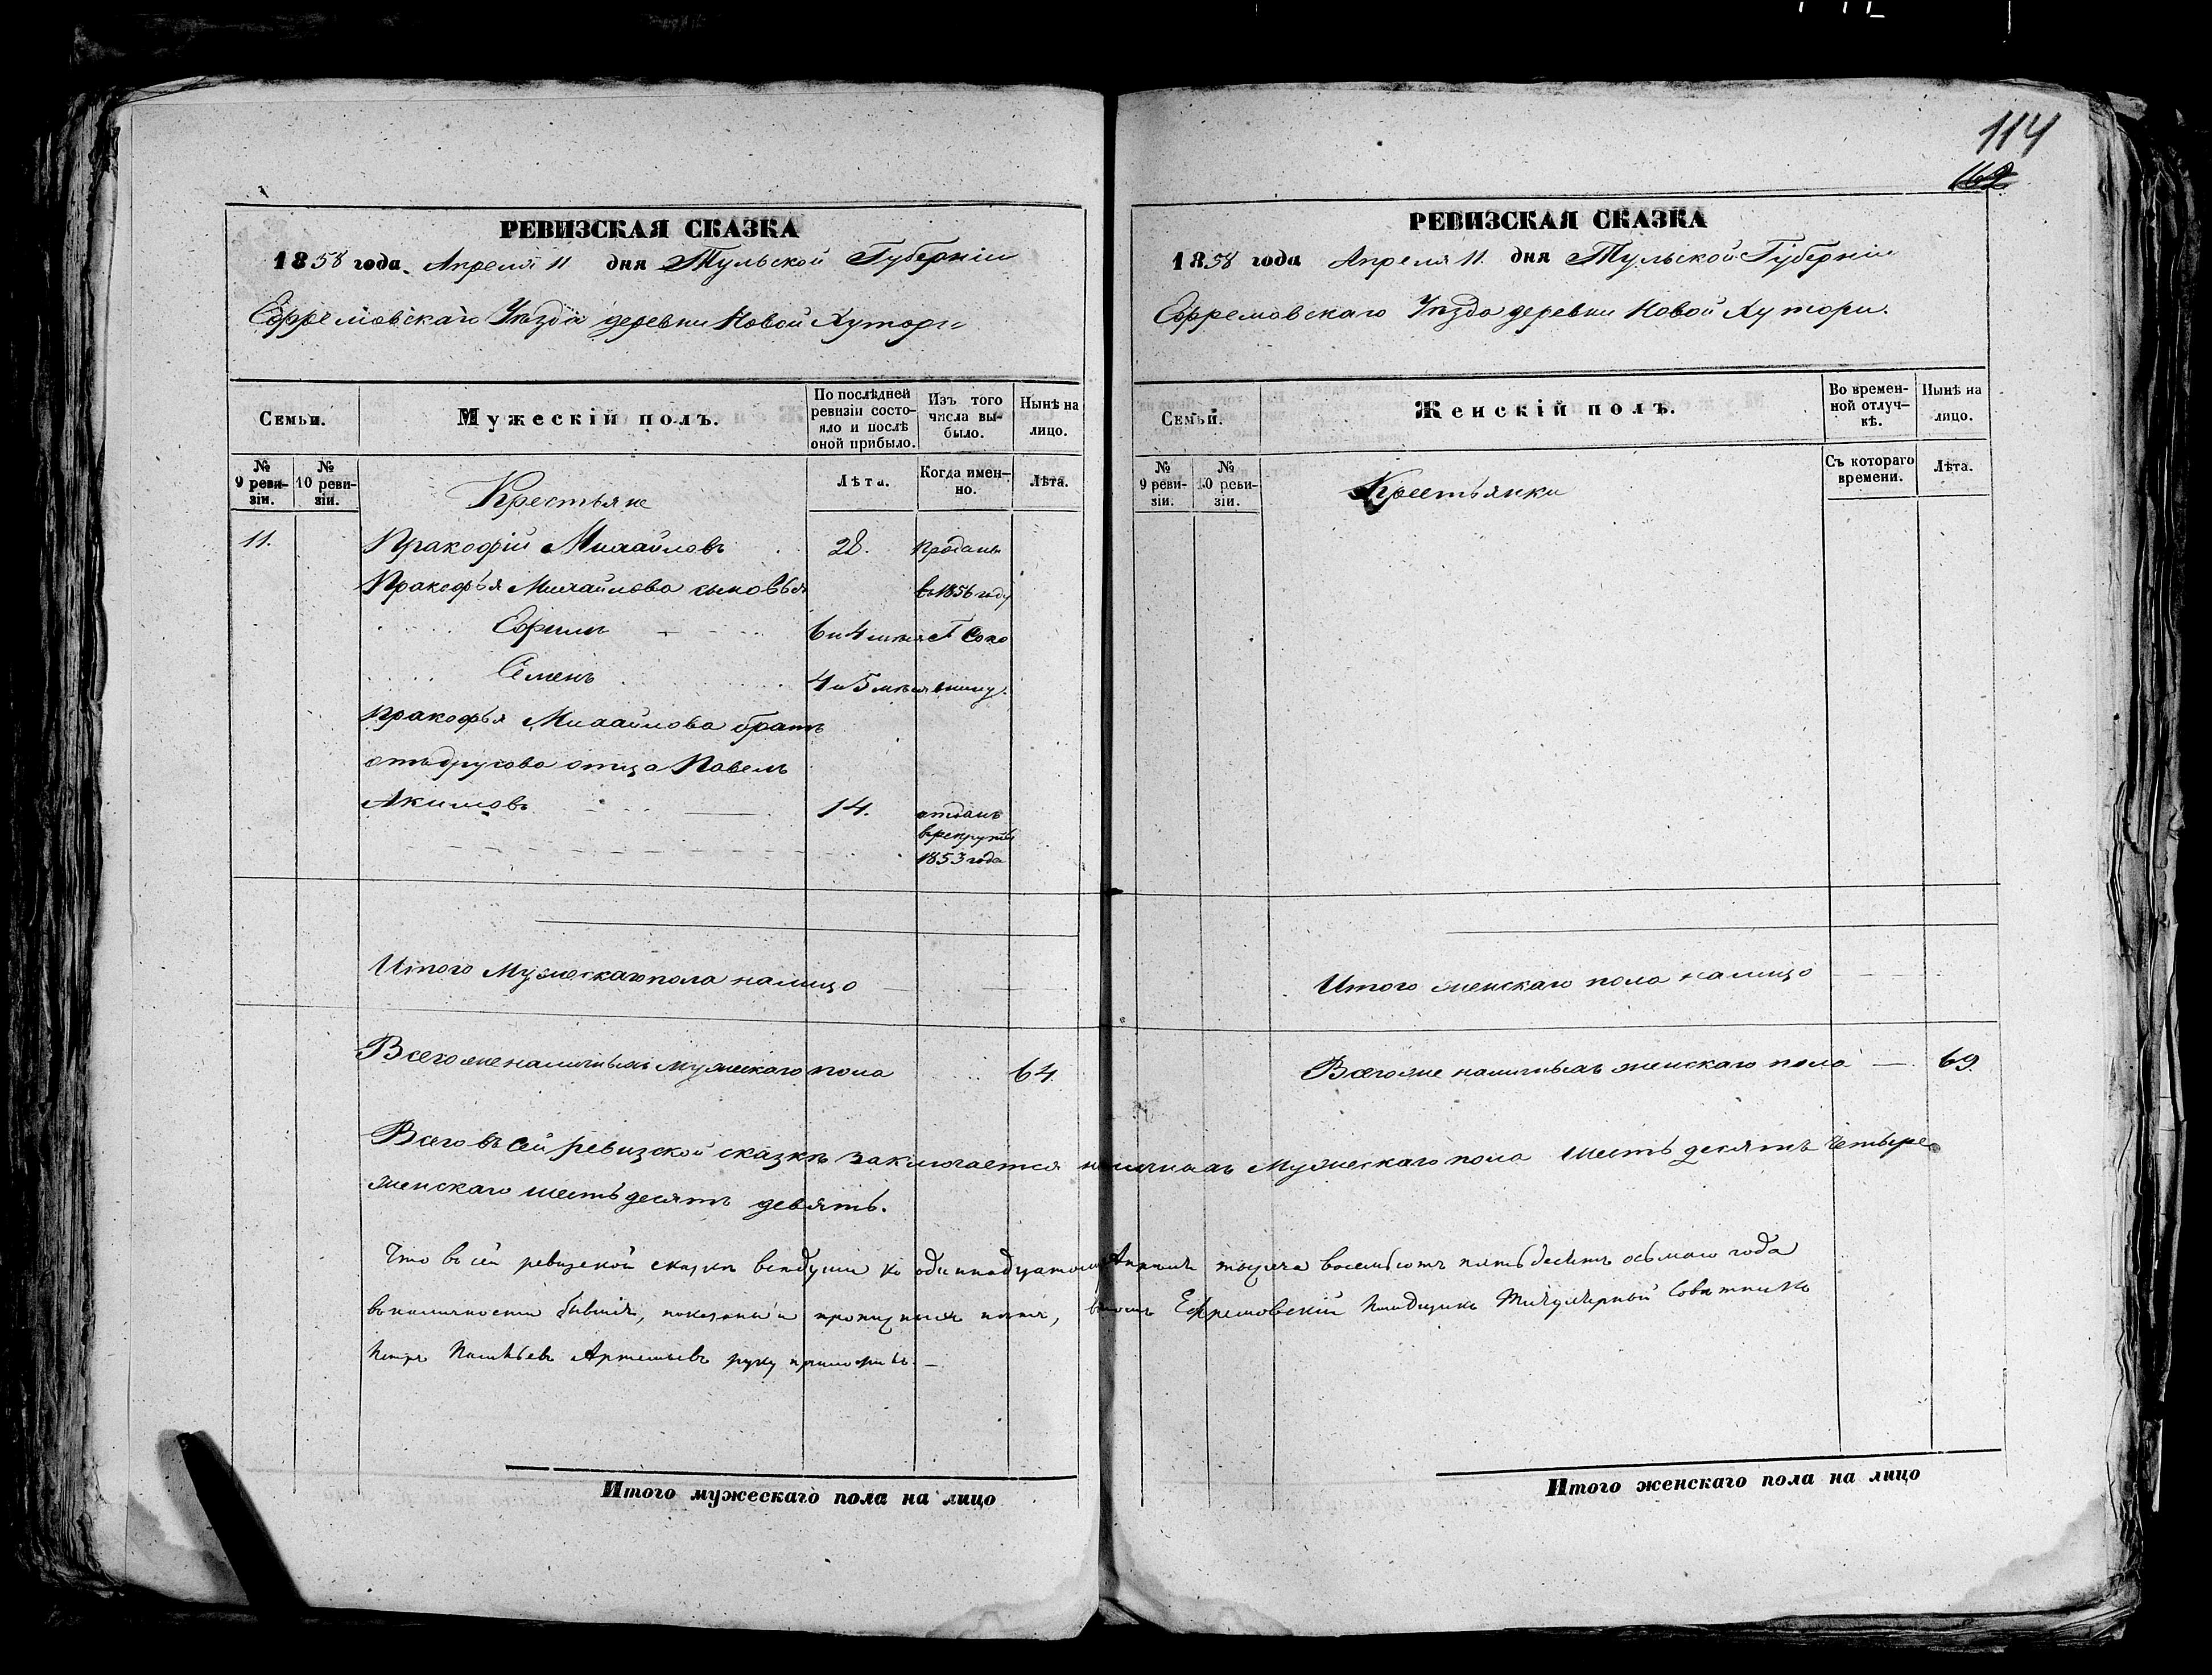 114
162
РЕВИЗСКАЯ СКАЗКА
1858 года Апреля 11 дня Тульской Губерніи
Ефремовскаго Уѣзда деревни Новой Хутори
Семьи.
Мужескій полъ.
По послѣдней ревизіи состояло и послѣ оной прибыло.
Изъ того числа выбыло.
Нынѣ на лицо.
№ 9 ревизіи.
№ 10 ревизіи.
Лѣта.
Когда именно.
Лѣта.
Крестьяне
11. Пракофій Михайловъ 28. Проданъ
Пракофья Михайлова сыновья въ 1856 году
Ефимъ 6 и 4 мѣся Г Соко
Семенъ 4 и 5 мѣся внину.
Пракофья Михайлова братъ
отъ другова отца Павелъ
Акимовъ 14. отданъ
в рекруты
1853 года
Итого Мужескаго пола налицо
Всего же наличныхъ мужескаго пола 64.
Итого мужескаго пола на лицо
РЕВИЗСКАЯ СКАЗКА
1858 года Апреля 11. дня Тульской Губерніи
Ефремовскаго Уѣзда деревни Новой Хутори.
Семьи.
Женскій полъ.
Во временной отлучкѣ.
Нынѣ на лицо.
№ 9 ревизіи.
№ 10 ревизіи.
Съ котораго времени.
Лѣта.
Крестьянки
Итого женскаго пола налицо
Всего же наличныхъ женскаго пола — 69.
Всего въ сей ревизской сказкѣ заключается наличныхъ Мужескаго пола шестьдесятъ четыре
женскаго шестьдесятъ девять.
Что в сей ревизской сказки всѣ души ко одиннадцатому Апреля тысяча восемьсотъ пятьдесятъ осьмаго года
в наличности бывшія, показаны и прописныхъ нѣтъ, в томъ Ефремовскій Помѣщикъ Титулярный Совѣтникъ
Петръ Артемьевъ руку приложилъ.—
Итого женскаго пола на лицо